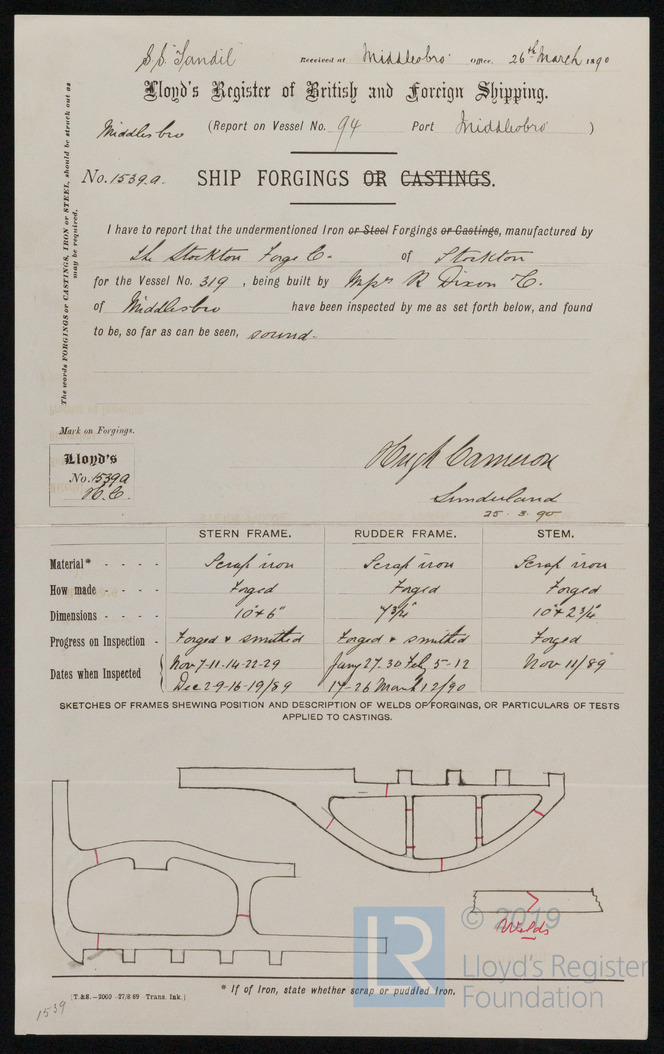 S.S. "Tandil" Received at Middlesbro' Office, 26th March 1890
Lloyd's Register of British and Foreign Shipping.
Middlesbro (Report on Vessel No. 94 Port Middlesbro' )
No. 1539a. SHIP FORGINGS OR CASTINGS.
The words FORGINGS or CASTINGS, IRON or STEEL, should be struck out as
may be required.
I have to report that the undermentioned Iron or Steel Forgings or Castings, manufactured by
The Stockton Forge Co. of Stockton
for the Vessel No. 319 , being built by R Dixon & Co.
of Middlesbro have been inspected by me as set forth below, and found
to be, so far as can be seen, sound.
Mark on Forgings.
Lloyd's
No. 1539a
H.C.
Hugh Cameron
Sunderland
25. 3. 90
STERN FRAME. RUDDER FRAME. STEM.
Material* - - - - Scrap iron Scrap iron Scrap iron
How made - - - - Forged Forged Forged
Dimensions - - - - 10" x 6" 7 3/4" 10" x 2 3/4"
Progress on Inspection - Forged & smithed Forged & smithed Forged
Dates when Inspected Nov 7-11-14-22-29 Jany 27-30 Feb 5-12 Nov 11/89
Dec 2-9-16-19/89 17-26 March 12/90
SKETCHES OF FRAMES SHEWING POSITION AND DESCRIPTION OF WELDS OF FORGINGS, OR PARTICULARS OF TESTS
APPLIED TO CASTINGS.
Welds
© 2019
LR
Lloyd's Register
Foundation
* If of Iron, state whether scrap or puddled Iron.
[T.&S.—2000—27/8/89 Trans. Ink.]
1539